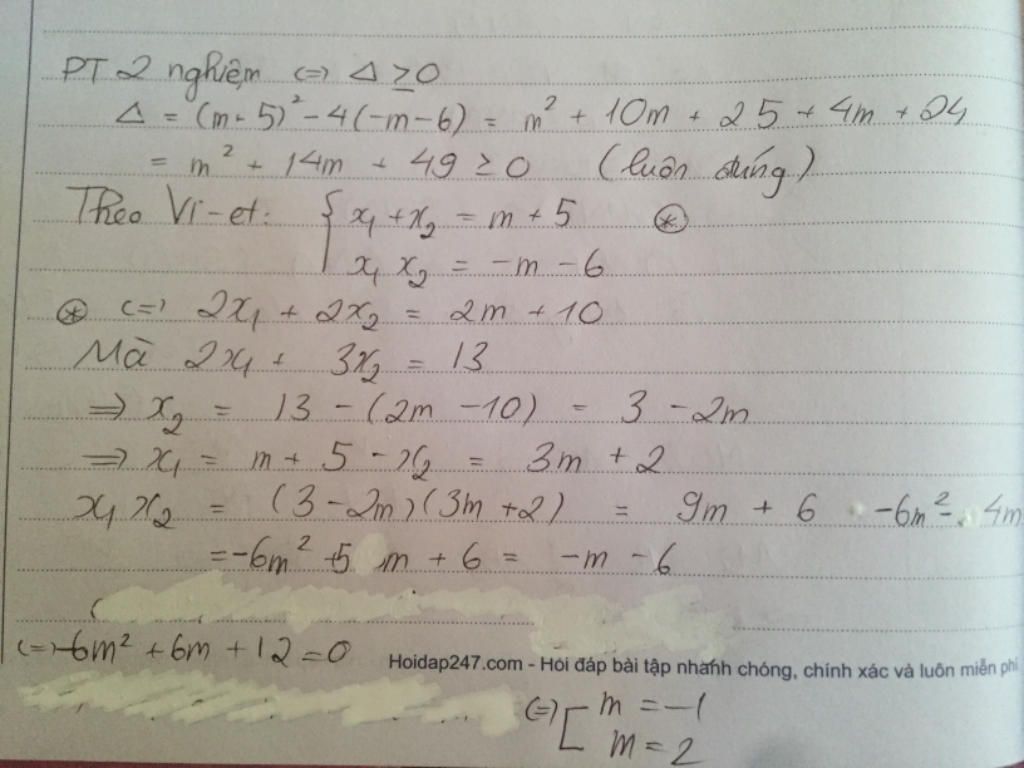 PT 2 nghiệm <=> Δ ≥ 0
Δ = (m - 5)² - 4(-m - 6) = m² + 10m + 25 + 4m + 24
= m² + 14m + 49 ≥ 0 (luôn đúng)
Theo Vi-et: { x₁ + x₂ = m + 5 (*)
x₁ x₂ = -m - 6
(*) <=> 2x₁ + 2x₂ = 2m + 10
Mà 2x₁ + 3x₂ = 13
=> x₂ = 13 - (2m - 10) = 3 - 2m
=> x₁ = m + 5 - x₂ = 3m + 2
x₁ x₂ = (3 - 2m)(3m + 2) = 9m + 6 -6m² - 4m
= -6m² + 5m + 6 = -m - 6
<=> -6m² + 6m + 12 = 0
Hoidap247.com - Hỏi đáp bài tập nhanh chóng, chính xác và luôn miễn phí
<=> [ m = -1
m = 2